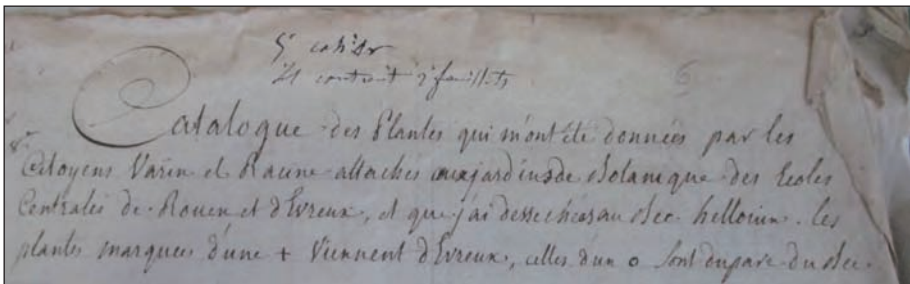 5e cahier
il contient 2 feuillets
6
Catalogue des Plantes qui m'ont été données par les
Citoyens Varin et Racine attachés aux jardins de Botanique des Ecoles
Centrales de Rouen et d'Evreux, et que j'ai dessechées au Bec helloiun. les
plantes marquees d'une + viennent d'Evreux, celles d'un o sont du parc du Bec.